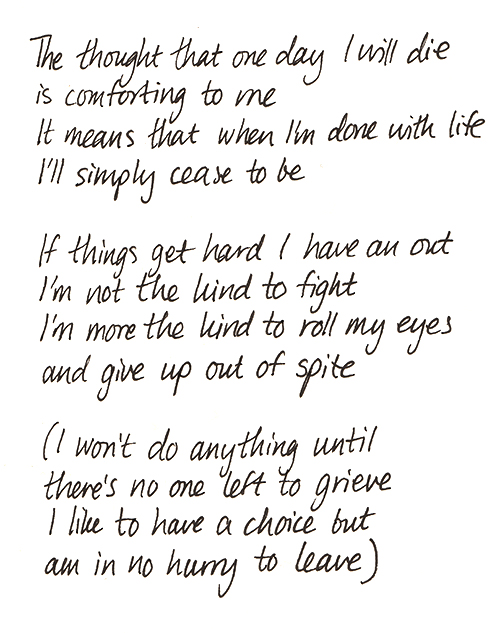 The thought that one day I will die
is comforting to me
It means that when I'm done with life
I'll simply cease to be

If things get hard I have an out
I'm not the kind to fight
I'm more the kind to roll my eyes
and give up out of spite

(I won't do anything until
there's no one left to grieve
I like to have a choice but
am in no hurry to leave)